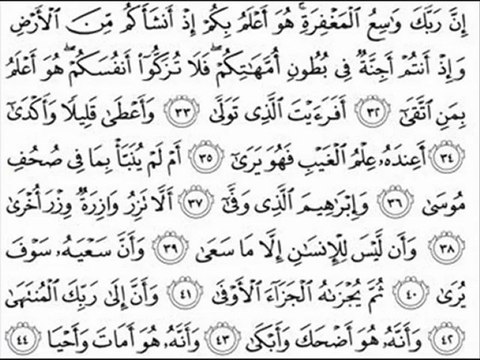 إِنَّ رَبَّكَ وَاسِعُ الْمَغْفِرَةِ ۚ هُوَ أَعْلَمُ بِكُمْ إِذْ أَنْشَأَكُمْ مِّنَ الْأَرْضِ
وَإِذْ أَنتُمْ أَجِنَّةٌ فِي بُطُونِ أُمَّهَاتِكُمْ ۖ فَلَا تُزَكُّوا أَنفُسَكُمْ ۖ هُوَ أَعْلَمُ
بِمَنِ اتَّقَىٰ ٣٢ أَفَرَءَيْتَ الَّذِي تَوَلَّىٰ ٣٣ وَأَعْطَىٰ قَلِيلًا وَأَكْدَىٰ
٣٤ أَعِندَهُ عِلْمُ الْغَيْبِ فَهُوَ يَرَىٰ ٣٥ أَمْ لَمْ يُنَبَّأْ بِمَا فِي صُحُفِ
مُوسَىٰ ٣٦ وَإِبْرَاهِيمَ الَّذِي وَفَّىٰ ٣٧ أَلَّا تَزِرُ وَازِرَةٌ وِزْرَ أُخْرَىٰ
٣٨ وَأَن لَّيْسَ لِلْإِنسَانِ إِلَّا مَا سَعَىٰ ٣٩ وَأَنَّ سَعْيَهُ سَوْفَ
يُرَىٰ ٤٠ ثُمَّ يُجْزَاهُ الْجَزَاءَ الْأَوْفَىٰ ٤١ وَأَنَّ إِلَىٰ رَبِّكَ الْمُنتَهَىٰ
٤٢ وَأَنَّهُ هُوَ أَضْحَكَ وَأَبْكَىٰ ٤٣ وَأَنَّهُ هُوَ أَمَاتَ وَأَحْيَا ٤٤